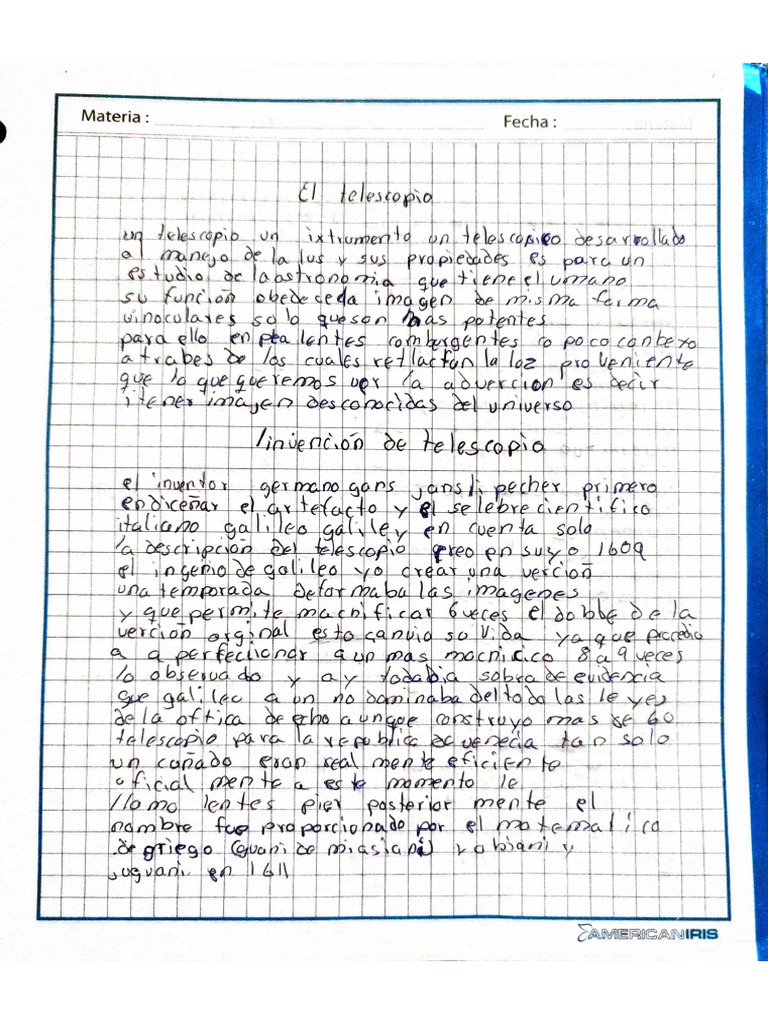 Materia :
Fecha :
El telescopio
un telescopio un ixtrumento un telescopico desarrollado
al manejo de la lus y sus propiedades es para un
estudio de la astronomia que tiene el umano
su función obedeceda imagen de misma forma
vinoculares solo queson mas potentes
para ello enplea lentes comburgentes co poco conbexo
atrabes de los cuales retlactan la loz proveniente
que lo que queremos ver la advercion es decir
itener imajen desconocidas del universo
invención de telescopio
el inventor germano gans jansli pecher primero
endiceñar el artefacto y el selebre cientifico
italiano galileo galiley en cuenta solo
la descripción del telescopio creo en suyo 1609
el ingenio de galileo yo crear una verción
una temporada deformaba las imagenes
y que permite macnificar 6 veces el dobble de la
verción orginal esto canvio so vida ya que procedio
a a perfectionar aun mas macnicico 8 a 9 veces
lo observado y ay todabia sobra de evidencia
que galileo a un no dominaba del todo las le yes
de la oftica de echo aunque construyo mas se 60
telescopio para la republica de venecia tan solo
un cañado eran real mente eficiente
oficial mente a este momento le
llomo lentes pier posterior mente el
nombre fue proporcionado por el matematico
de griego (guani de miasiani) y abiani y
juguani en 1611
AMERICANIRIS